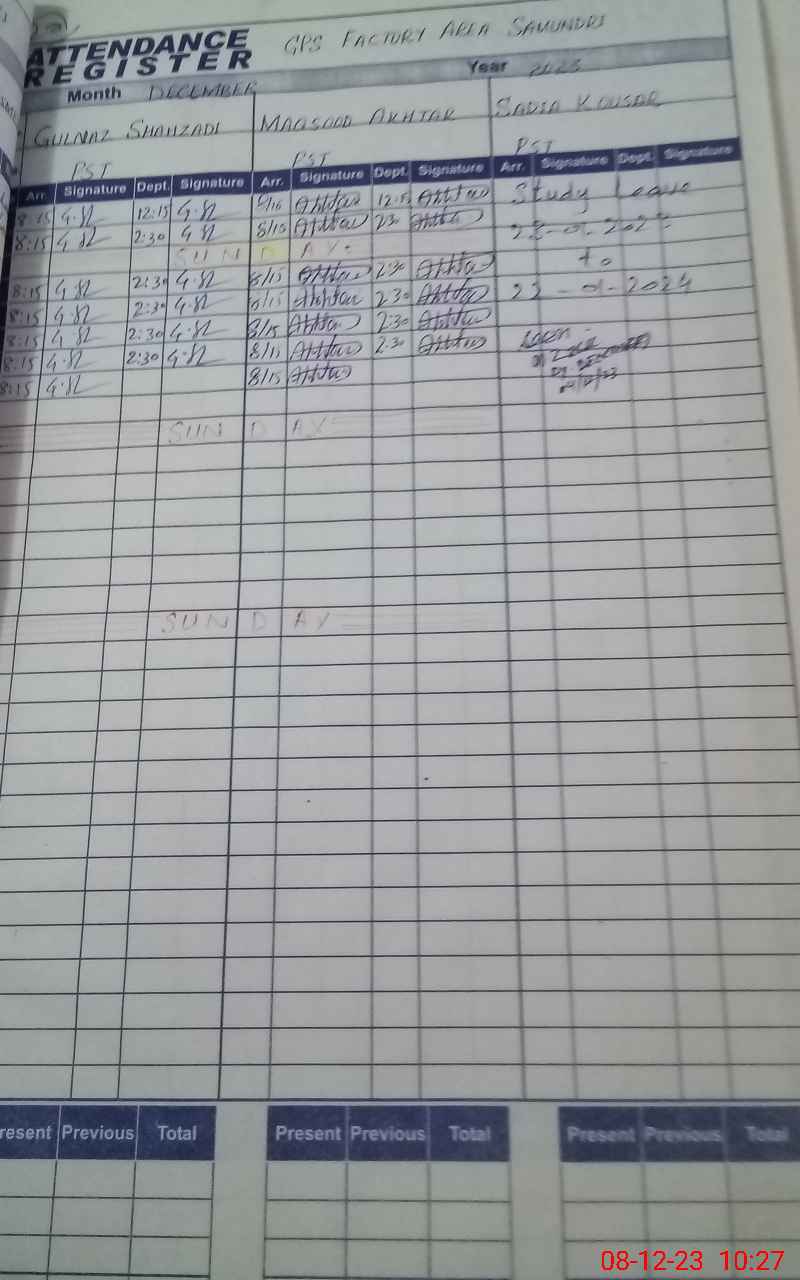 ATTENDANCE REGISTER GPS FACTORY AREA SAMUNDRI
Month DECEMBER Year 2023
GULNAZ SHAHZADI MAQSOOD AKHTAR SADIA KOUSAR
PST PST PST
Arr. Signature Dept. Signature Arr. Signature Dept. Signature Arr. Signature Dept. Signature
8:15 G.SZ 12:15 G.SZ 8/15 Akhtar 12:15 Akhtar Study Leave
8:15 G.SZ 2:30 G.SZ 8/15 Akhtar 2:30 Akhtar
SUNDAY to
8:15 G.SZ 2:30 G.SZ 8/15 Akhtar 2:30 Akhtar
8:15 G.SZ 2:30 G.SZ 8/15 Akhtar 2:30 Akhtar 22-01-2024
8:15 G.SZ 2:30 G.SZ 8/15 Akhtar 2:30 Akhtar
8:15 G.SZ 2:30 G.SZ 8/15 Akhtar 2:30 Akhtar
8:15 G.SZ 8/15 Akhtar
SUNDAY
SUNDAY
Present Previous Total Present Previous Total Present Previous Total
08-12-23 10:27